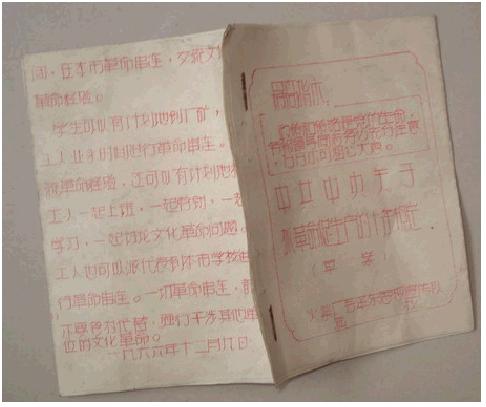 间,在本市革命串连,交流文
革命经验。
学生可以有计划地到厂矿,
工人业余时间进行革命串连。
流革命经验,还可以有计划地
工人一起上班,一起劳动,一起
学习,一起讨论文化革命问题。
工人也可以派代表到本市学校
行革命串连。一切革命串连,都
位的文化革命。
一九六六年十二月九日
最高指示
政策和策略是党的生命,
各级领导同志务必充分注意,
万万不可粗心大意。
中共中央关于
抓革命促生产的十条规定
(草案)